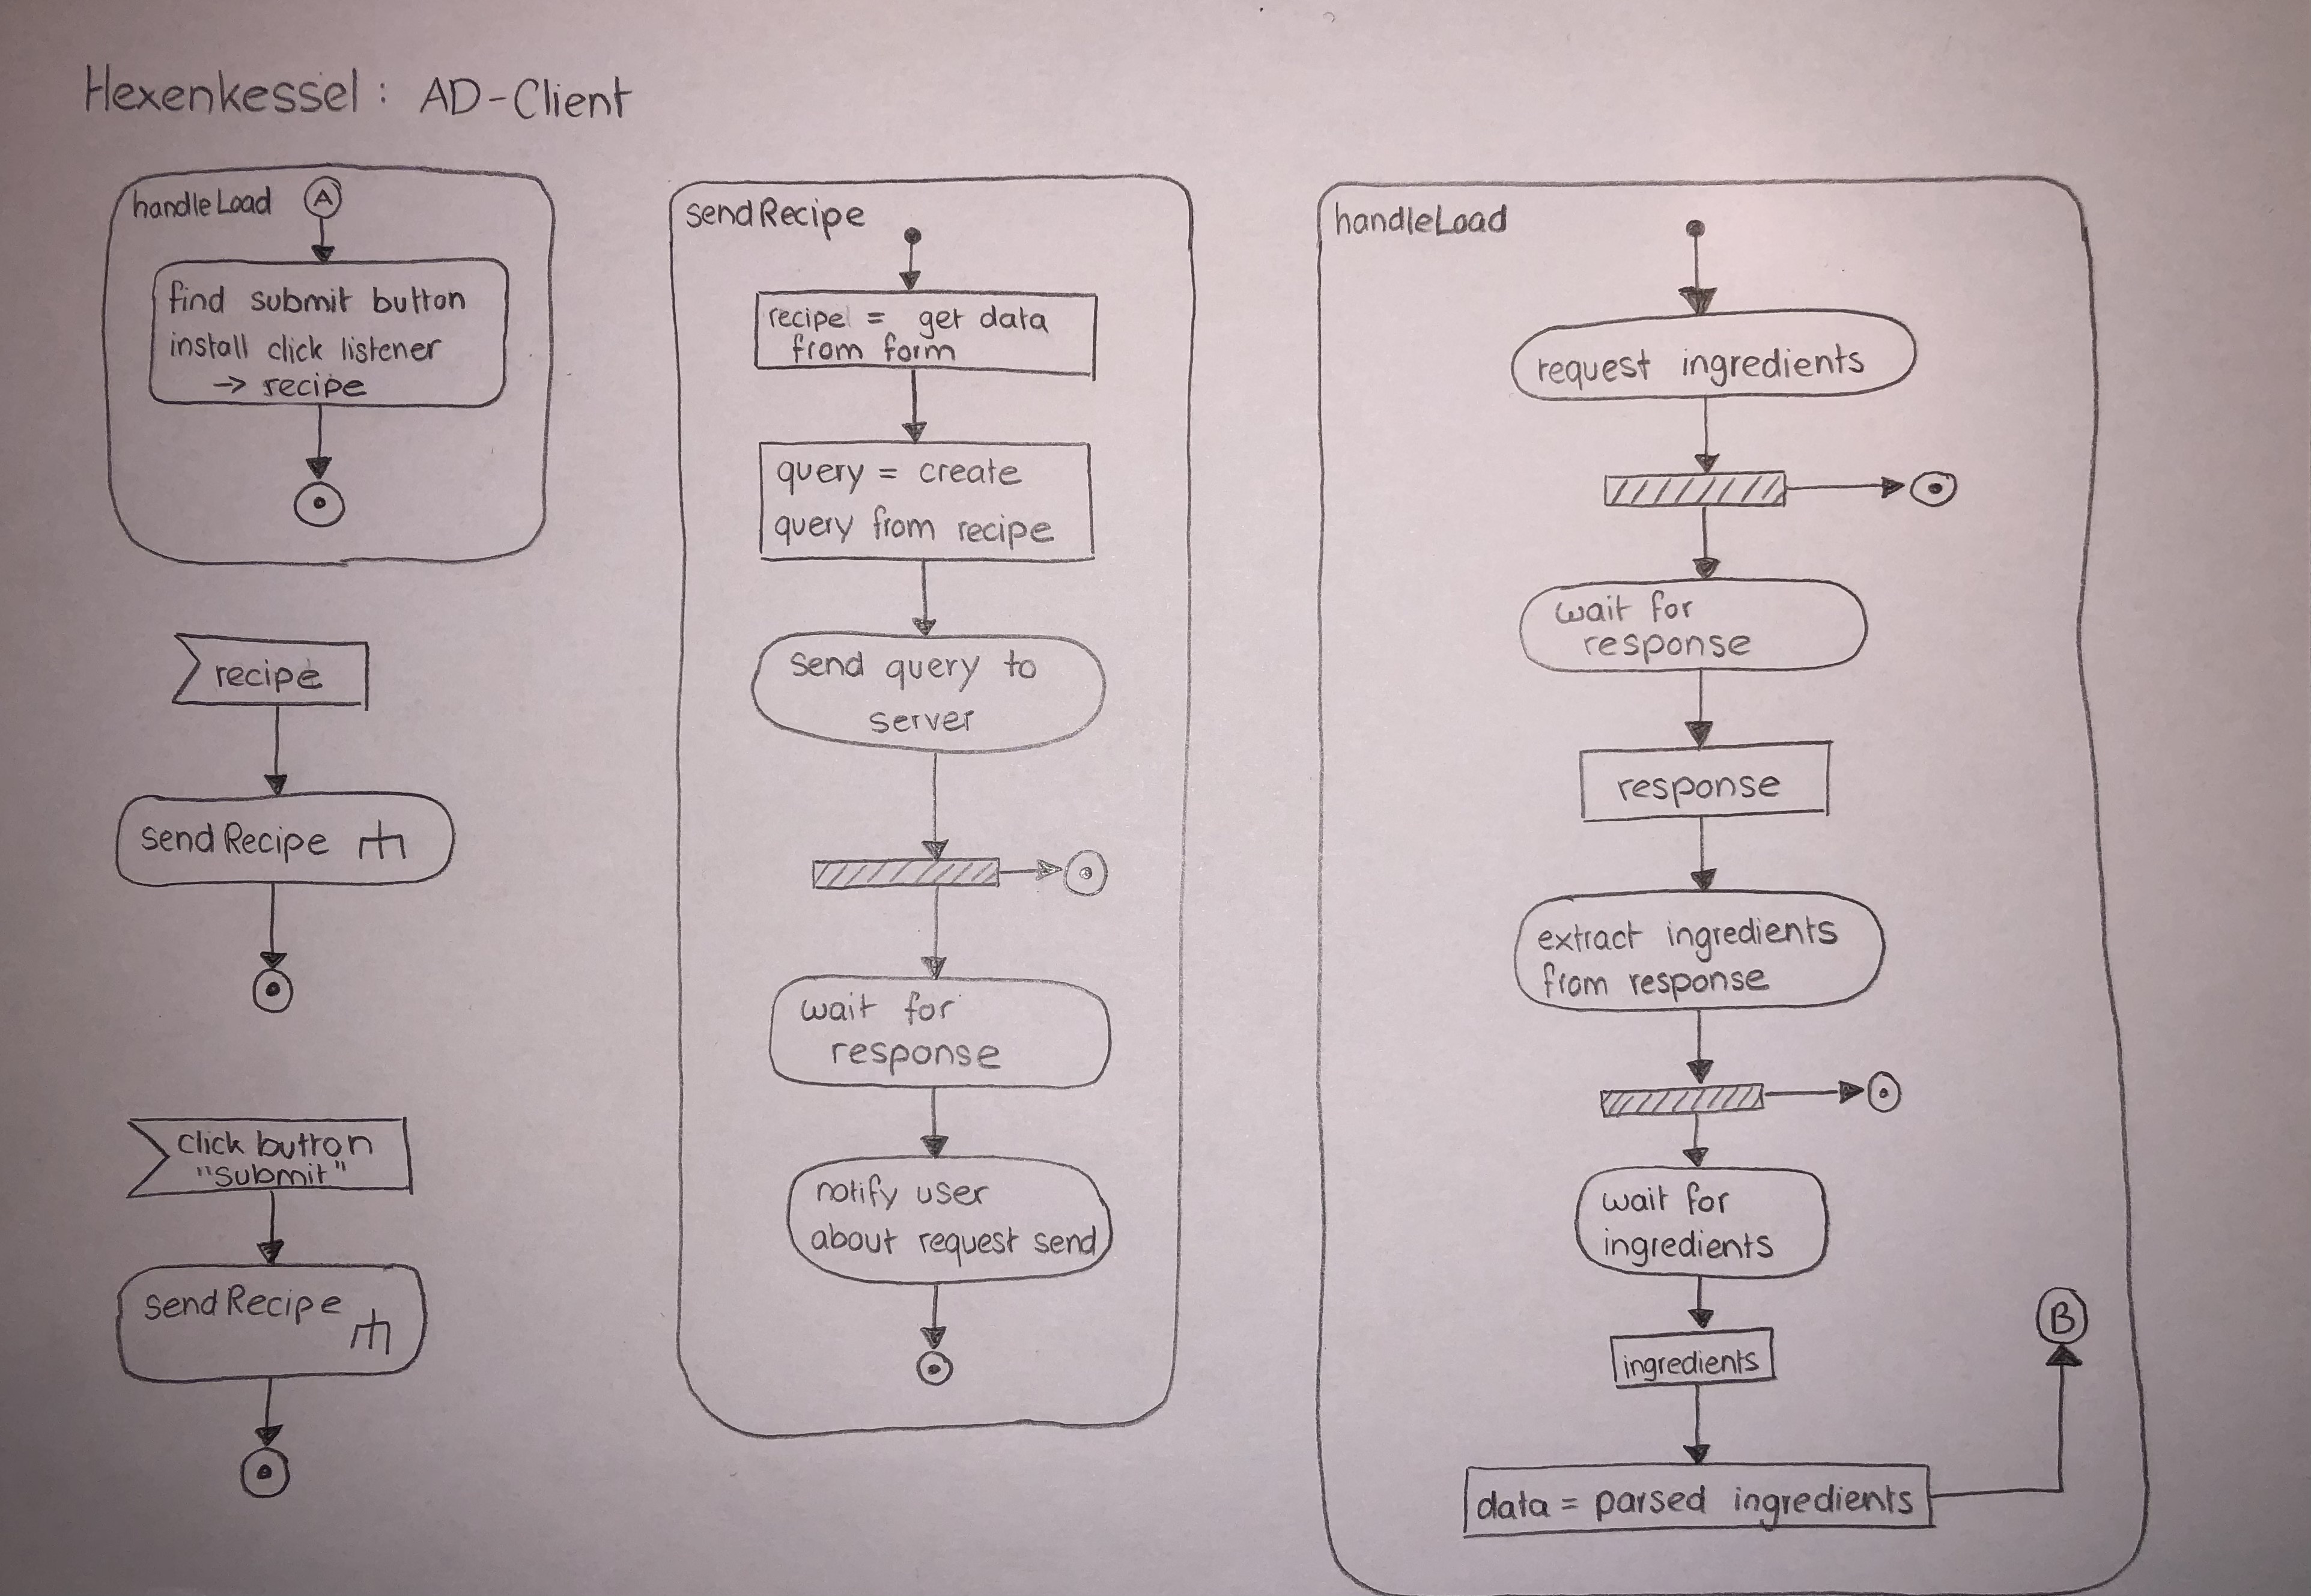 Hexenkessel: AD-Client
handleLoad A
find submit button
install click listener
→ recipe
recipe
sendRecipe
click button
"Submit"
sendRecipe
sendRecipe
recipe = get data
from form
query = create
query from recipe
send query to
server
wait for
response
notify user
about request send
handleLoad
request ingredients
wait for
response
response
extract ingredients
from response
wait for
ingredients
ingredients
data = parsed ingredients
B